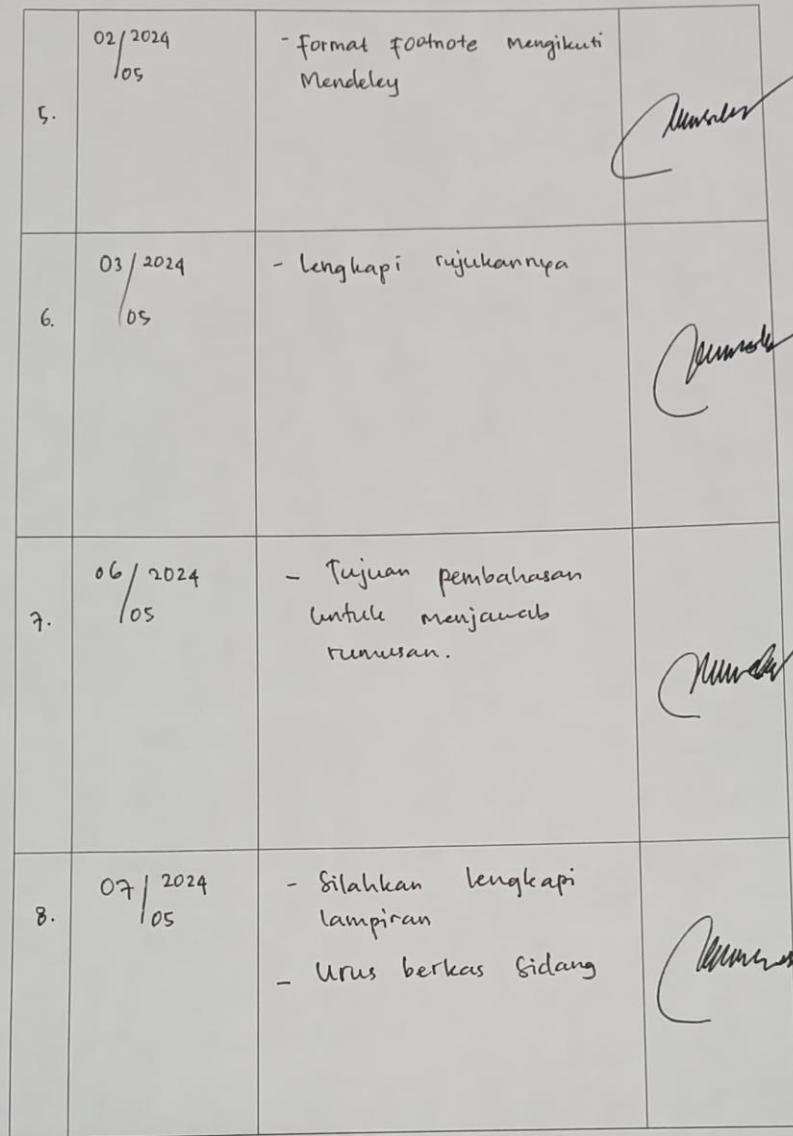 5.
02/2024
05
- Format Footnote Mengikuti
Mendeley
6.
03/2024
05
- Lengkapi rujukannya
7.
06/2024
05
- Tujuan pembahasan
untuk menjawab
rumusan.
8.
07/2024
05
- Silahkan lengkapi
lampiran
- Urus berkas Sidang